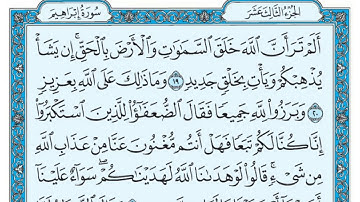 الجزء الثالث عشر
سورة إبراهيم
أَلَمْ تَرَ أَنَّ اللَّهَ خَلَقَ السَّمَاوَاتِ وَالْأَرْضَ بِالْحَقِّ إِنْ يَشَأْ
يُذْهِبْكُمْ وَيَأْتِ بِخَلْقٍ جَدِيدٍ ١٩ وَمَا ذَلِكَ عَلَى اللَّهِ بِعَزِيزٍ
٢٠ وَبَرَزُوا لِلَّهِ جَمِيعًا فَقَالَ الضُّعَفَاءُ لِلَّذِينَ اسْتَكْبَرُوا
إِنَّا كُنَّا لَكُمْ تَبَعًا فَهَلْ أَنْتُمْ مُغْنُونَ عَنَّا مِنْ عَذَابِ اللَّهِ
مِنْ شَيْءٍ قَالُوا لَوْ هَدَانَا اللَّهُ لَهَدَيْنَاكُمْ سَوَاءٌ عَلَيْنَا